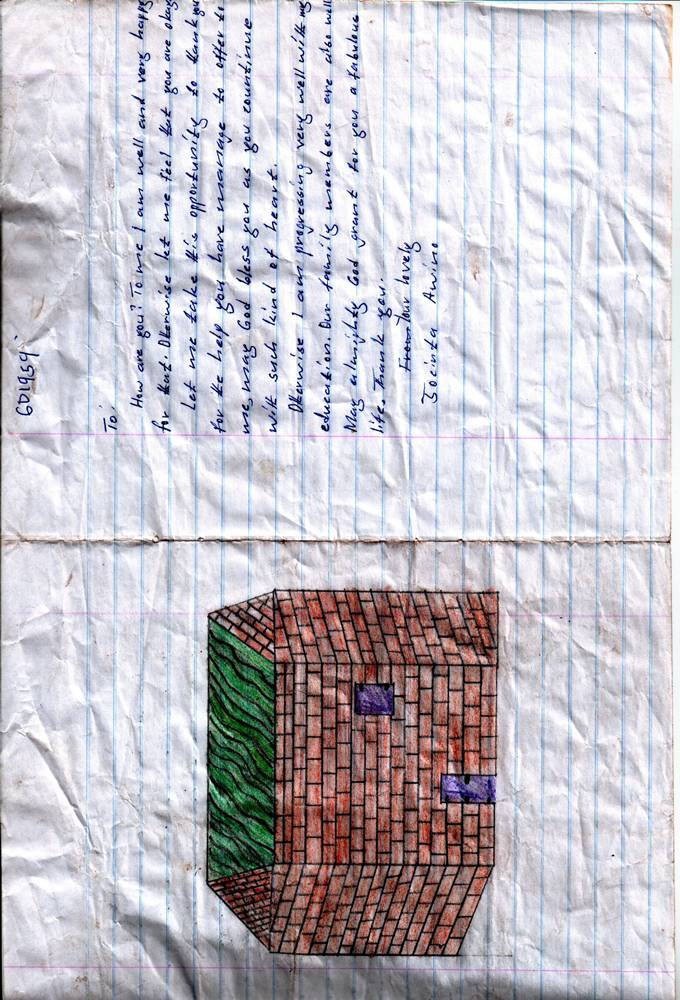 6D1959
To,
How are you? To me I am well and very happy
for that. Otherwise let me feel that you are okay
Let me take this opportunity to thank you
for the help you have manage to offer to
me, may God bless you as you countinue
with such kind of heart.
Otherwise I am progressing very well with my
education. Our family members are also well
May almighty God grant for you a fabulous
life. Thank you.
From Your lovely
Jocinta Awino